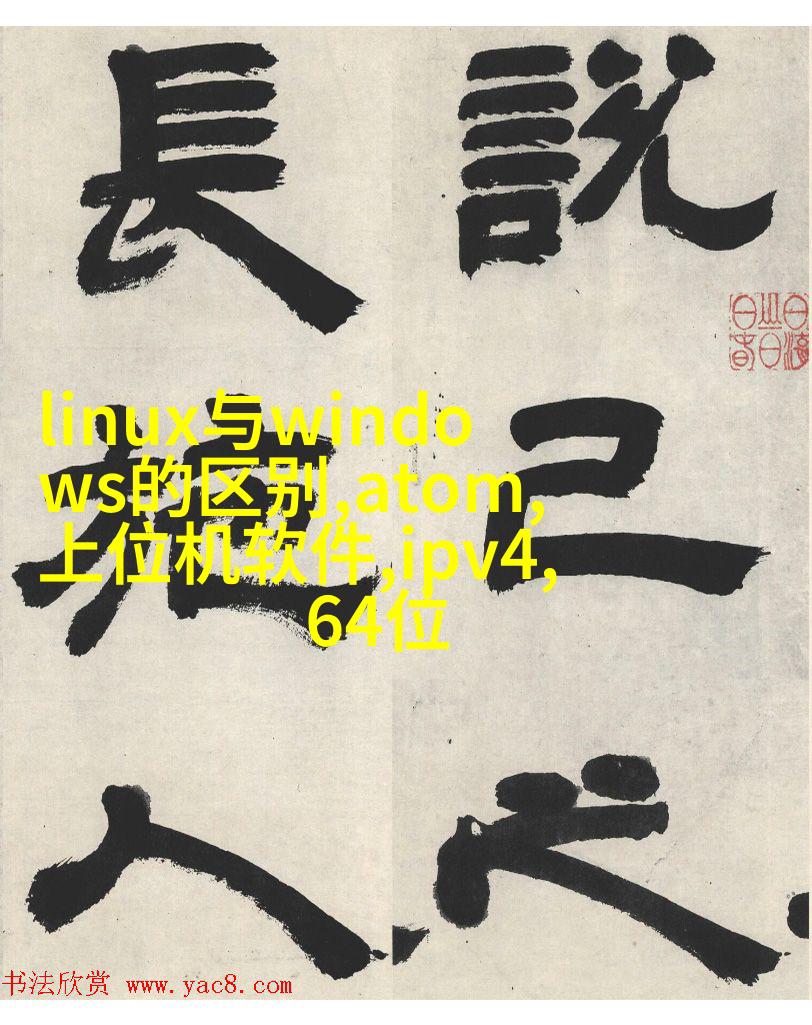 説己之
長施人
linux与windo
ws的区别,atom,
上位机软件,ipv4,
64位
书法欣赏 www.yac8.com